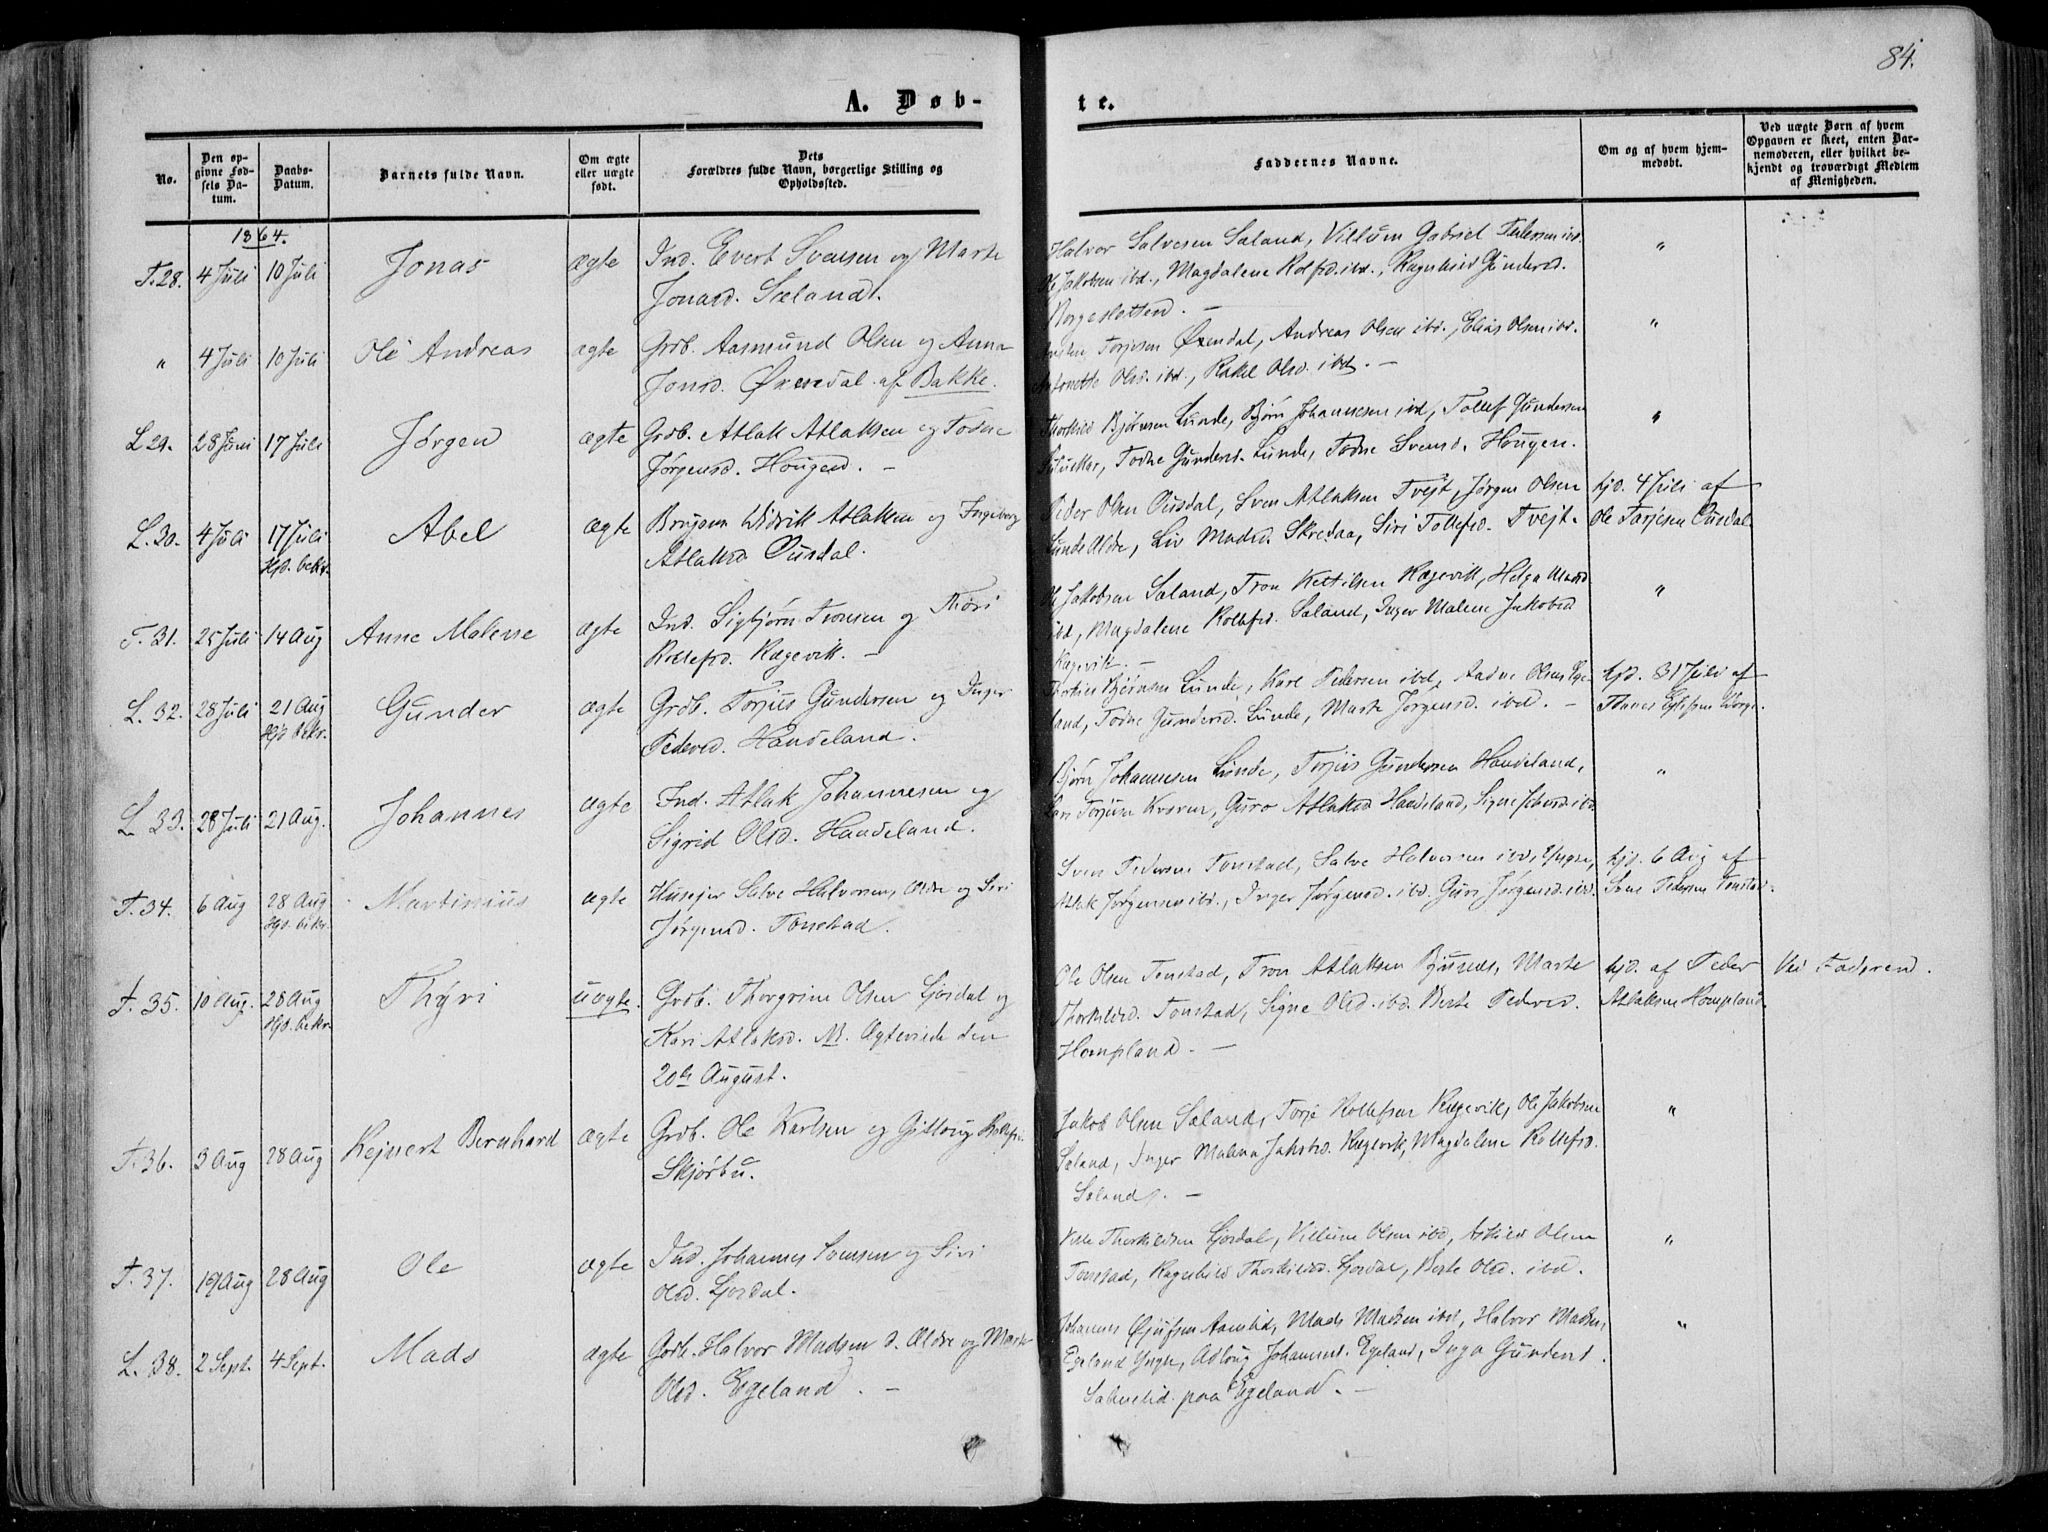 84.
A. Døb-
te.
No.
Den opgivne Fødsels Datum.
Daabs-Datum.
Barnets fulde Navn.
Om ægte eller uægte født.
Dets Forældres fulde Navn, borgerlige Stilling og Opholdssted.
Faddernes Navne.
Om og af hvem hjemmedøbt.
Ved uægte Børn af hvem Opgaven er skeet, enten Barnemoderen, eller hvilket bekjendt og troværdigt Medlem af Menigheden.
1864.
T. 28. 4 Juli 10 Juli Jonas ægte Ind. Evert Svensen og Marte
Jonasd. Sæland.
Halvor Salvesen Sæland, Villum Gabriel Pedersen ibd.
Ole Jakobsen ibd., Magdalene Rolfsd. ibd., Ragnhild Gundersd.
Norgeslotten. —
"
" 4 Juli 10 Juli Ole Andreas ægte Grdb. Aasmund Olsen og Anna
Jonsd. Øxendal af Bakke.
Torjesen Øxendal, Andreas Olsen ibd., Elias Olsen ibd.
Antonette Olsd. ibd., Rakel Olsd. ibd. —
"
L 29. 28 Juni 17 Juli Jørgen ægte Grdb. Atlak Atlaksen og Todne
Jørgensd. Hougen. —
Thorkild Bjørnsen Lunde, Bjørn Johannesen ibd, Tollef Gundersen
Todne Gundersd. Lunde, Todne Svensd. Hougen.
"
L. 30. 4 Juli 17 Juli
Hjd. bekr. Abel ægte Brugsm. Didrik Atlaksen og Ingeborg
Atlaksd Ousdal.
Peder Olsen Ousdal, Sven Atlaksen Tvejt, Jørgen Olsen
Lunde Ældre, Liv Madsd. Skredaa, Siri Tollefsd. Tvejt.
hjd. 4 Juli af
Ole Tarjesen Ousdal
T. 31. 25 Juli 14 Aug Anne Malene ægte Ind. Sigbjørn Tronsen og Thori
Rollefsd. Rægevik. —
Ole Jakobsen Sæland, Tron Kettilsen Rægevik, Helga
ibd, Magdalene Rollefsd. Sæland, Inger Malene Jakobsd
Rægevik. —
"
L. 32. 28 Juli 21 Aug
Hjd bekr. Gunder ægte Grdb. Torjus Gundersen og Inger
Pedersd. Haudeland.
Thorkild Bjørnsen Lunde, Karl Pedersen ibd, Aadne Olsen Ege-
land, Todne Gundersd. Lunde, Marte Jørgensd. ibd. —
hjd. 31 Juli af
L. 33. 28 Juli 21 Aug. Johannes ægte Ind. Atlak Johannesen og
Sigrid Olsd. Haudeland.
Bjørn Johannesen Lunde, Torjus Gundersen Haudeland,
Torjusen Kvæven, Guro Atlaksd Haudeland, Signe ibd
"
T. 34. 6 Aug 28 Aug
Hjd. bekr. Martinius ægte Husejer Salve Halvorsen, Ældre og Siri
Jørgensd. Tonstad.
Sven Pedersen Tonstad, Salve Halvorsen ibd, Yngre,
Atlak Jørgensen ibd., Inger Jørgensd. ibd. Guri Jørgensd. ibd.
hjd. 6 Aug af
Sven Pedersen Tonstad.
T. 35. 10 Aug. 28 Aug
Hjd. bekr. Thyri uægte. Grdb. Thorgrim Olsen Ljosdal og
Kari Atlaksd. NB. Ægteviede den
20de August.
Ole Olsen Tonstad, Tron Atlaksen Bjunes, Marte
Thorkildsd. Tonstad, Signe Olsd. ibd. Berte Pedersd.
Hompland. —
hjd. af Peder
Atlaksen Hompland.
Ved Faderen.
T. 36. 3 Aug 28 Aug Rejnert Bernhard ægte Grdb. Ole Karlsen og Gitlaug Rollefsd.
Skjørbu.
Jakob Olsen Sæland, Torje Rollefsen Rægevik, Ole Jakobsen
Sæland, Inger Malena Jakobsd. Rægevik, Magdalene Rollefsd.
Sæland. —
"
T. 37. 19 Aug 28 Aug Ole ægte Ind. Johannes Svensen og Siri
Olsd. Ljosdal.
Thorkildsen Ljosdal, Villum Olsen ibd, Askild Olsen
Tonstad, Ragnhild Thorkildsd. Ljosdal, Berte Olsd. ibd.
"
L. 38. 2 Sept. 4 Sept. Mads ægte Grdb. Halvor Madsen d. Ældre og Marte
Olsd. Egeland. —
Johannes Aamlid, Mads Madsen ibd, Halvor Madsen,
Egeland Yngre, Adloug Johannesd. Egeland, Inga Gundersd.
Salmelid paa Egeland. —
"